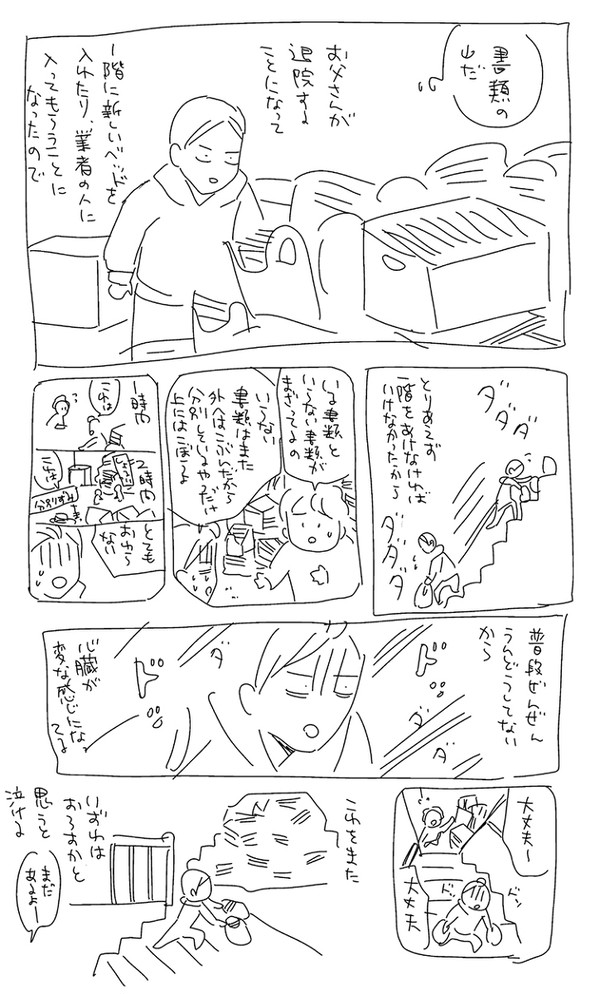 書類の
山だ
お父さんが
退院する
ことになって
一階に新しいベッドを
入れたり、業者の人に
入ってもらうことに
なったので
ダダダダ
とりあえず
一階をあけなければ
いけなかったから
ダダダダ
いる書類と
いらない書類が
まざってるの
いらない
書類はまた
外へはこぶんだから
分別しているやつだけ
上にはこぼうよ
1時間
これは
2時間
これは
分別ずみ
とても
おわら
ない
普段ぜんぜん
うんどうしてない
から
ド
ド
ダ
ダ
ダ
心臓が
変な感じにな
てる
大丈夫〜
ドッ
ドッ
大丈夫
これをまた
いずれは
おろすかと
思うと
泣ける
まだ
あるよー